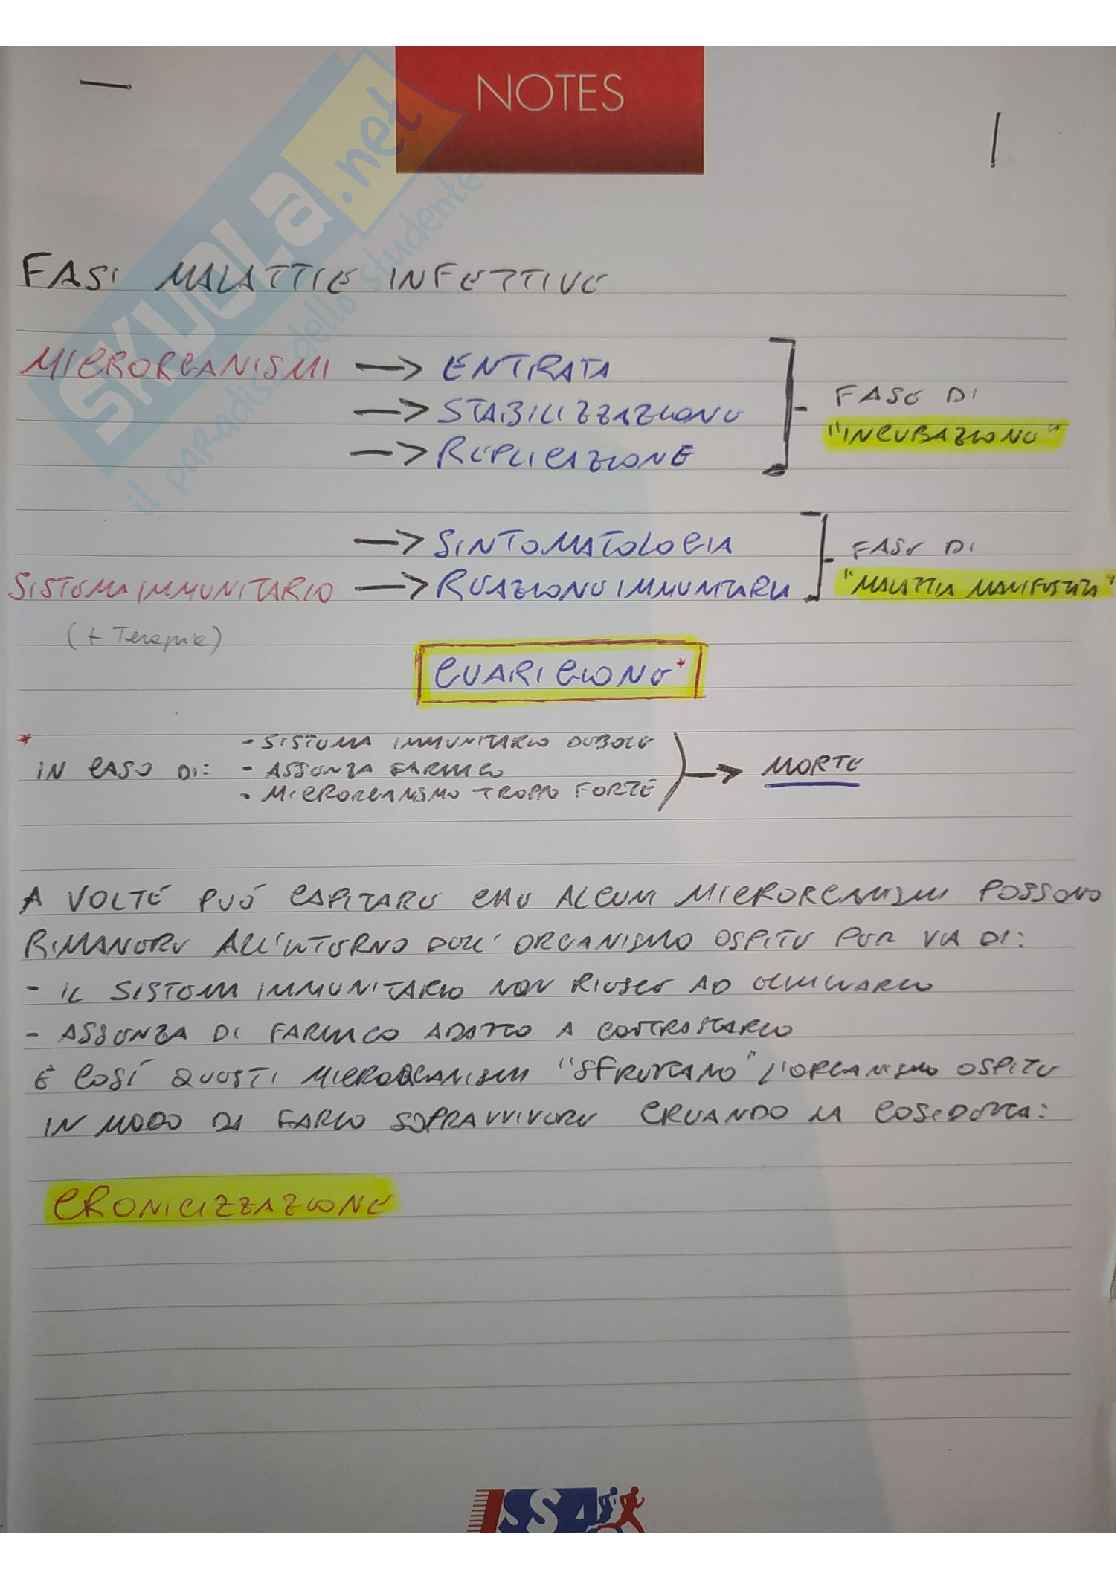 NOTES
SKUOLA.net
il paradiso dello studente
FASI MALATTIE INFETTIVE
MICRORGANISMI → ENTRATA
→ STABILIZZAZIONE
→ REPLICAZIONE
FASE DI
"INCUBAZIONE"
→ SINTOMATOLOGIA
SISTEMA IMMUNITARIO → REAZIONE IMMUNITARIA
FASE DI
"MALATTIA MANIFESTATA"
(+ Terapia)
GUARIGIONE*
*
IN CASO DI:
- SISTEMA IMMUNITARIO DEBOLE
- ASSENZA FARMACO
- MICRORGANISMO TROPPO FORTE
→ MORTE
A VOLTE PUÓ CAPITARE CHE ALCUNI MICRORGANISMI POSSONO
RIMANERE ALL'INTERNO DELL'ORGANISMO OSPITE PER VIA DI:
- IL SISTEMA IMMUNITARIO NON RIESCE AD ELIMINARLO
- ASSENZA DI FARMACO ADATTO A CONTRASTARLO
E COSÍ QUESTI MICRORGANISMI "SFRUTTANO" L'ORGANISMO OSPITE
IN MODO DI FARLO SOPRAVVIVERE CREANDO LA COSIDETTA:
CRONICIZZAZIONE